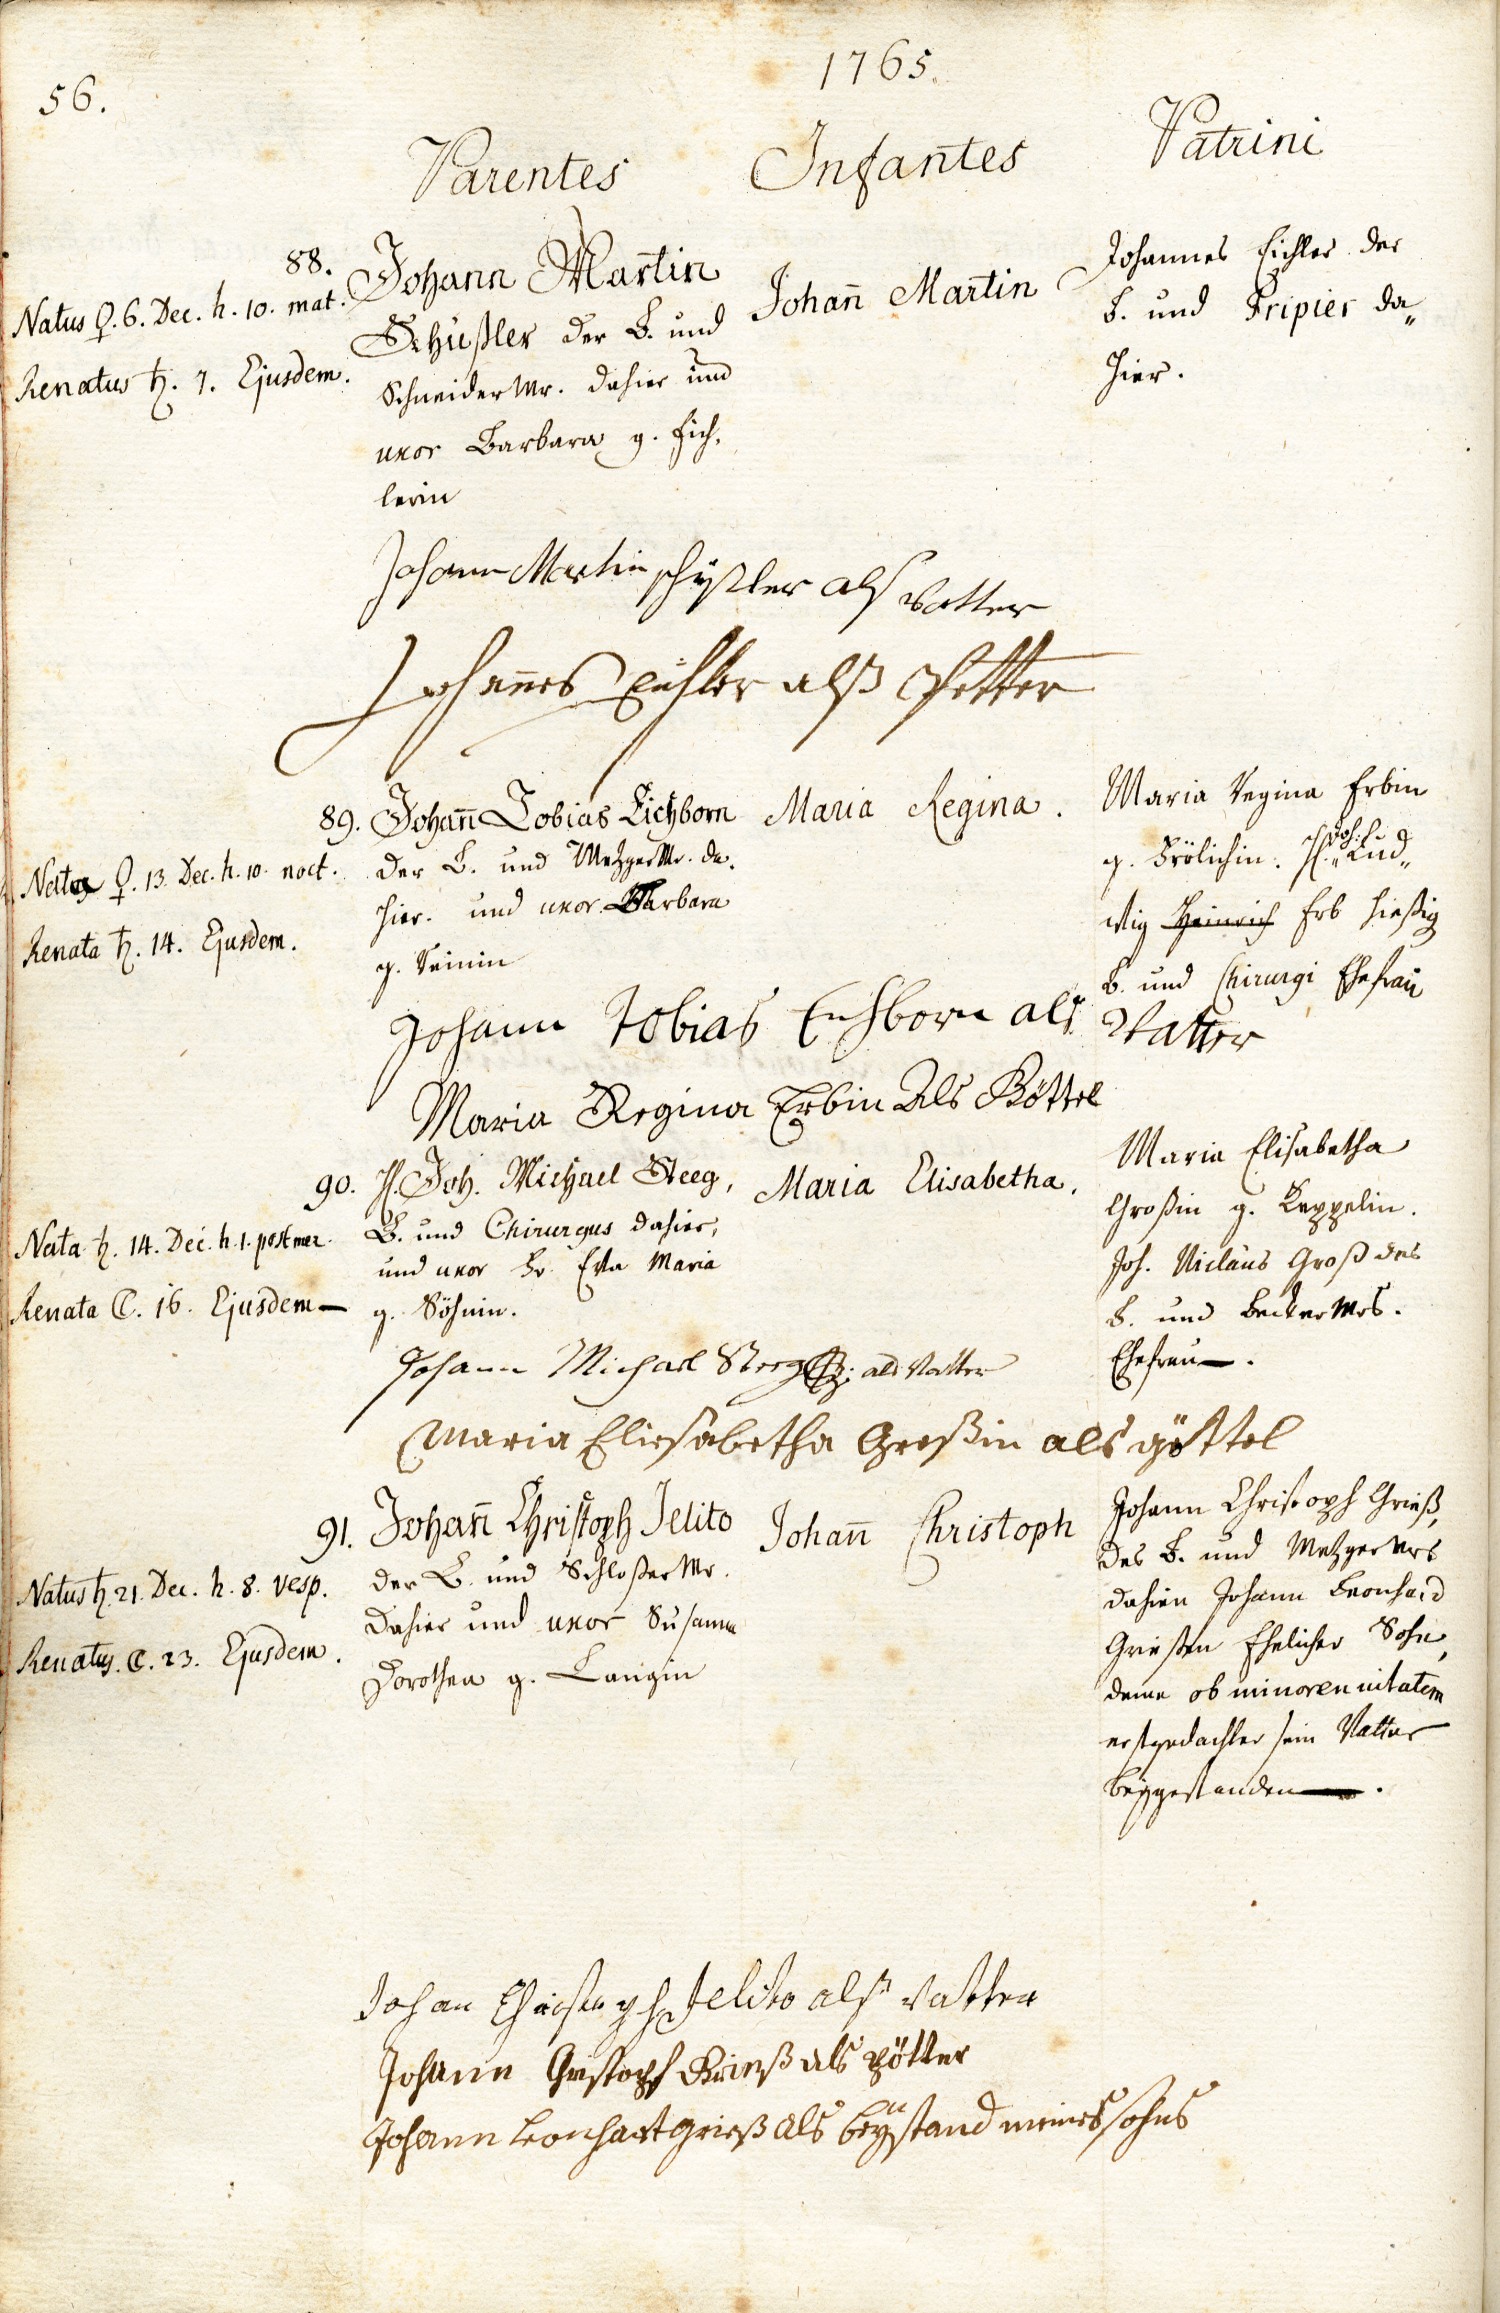 56.
1765.
Parentes
Infantes
Patrini
88.
Natus ♀. 6. Dec. h. 10. mat.
Renatus ♄. 7. Ejusdem.
Johann Martin
Schüßler der B. und
Schneider Mr. dahier und
uxor Barbara g. Eich,
lerin
Johann̄ Martin
Johannes Eichler der
B. und Fripier da„
hier.
Johann Martin schyßler alß vatter
Johannes Eichler alß Petter
89.
Nata ♀. 13. Dec. h. 10. noct.
Renata ♄. 14. Ejusdem.
Johan̄ Tobias Eichborn
der B. und Metzger Mr. da.
hier. und uxor Barbara
g.
Maria Regina.
Maria Regina Erbin
g. Frölichin. H. Joh. Lud„
wig Heinrich Erb hießig
B. und Chirurgi Ehefrau
Johann Tobias Eichborn als Vatter
Maria Regina Erbin Als Göttel
90.
Nata ♄. 14. Dec. h. 1. post mer.
Renata ☾. 16. Ejusdem—
H. Joh. Michael Steeg,
B. und Chirurgus dahier,
und uxor Fr. Eva Maria
g. Söhnin.
Maria Elisabetha.
Maria Elisabetha
Großin g. Keppelin.
Joh. Niclaus Groß des
B. und Becker Mrs.
Ehefrau—.
Johann Michael Steeg als Vatter
Maria Eliesabetha Großin als göttel
91.
Natus ♄. 21. Dec. h. 8. vesp.
Renatus. ☾. 23. Ejusdem.
Johan̄ Christoph Jelito
der B. und Schloßer Mr.
dahier und uxor Susanna
Dorothea g. Langin
Johan̄ Christoph
Johann Christoph Grieß,
des B. und Metzger Mrs
dahier Johann Leonhard
Grießen Ehelicher Sohn,
deme ob minorennitatem
erstgedachter sein Vatter
beygestanden—.
Johan Christoph Jelito alß vatter
Johann Gristoph Grieß als pötter
Johann Leonhart grieß als beystand meines sohns